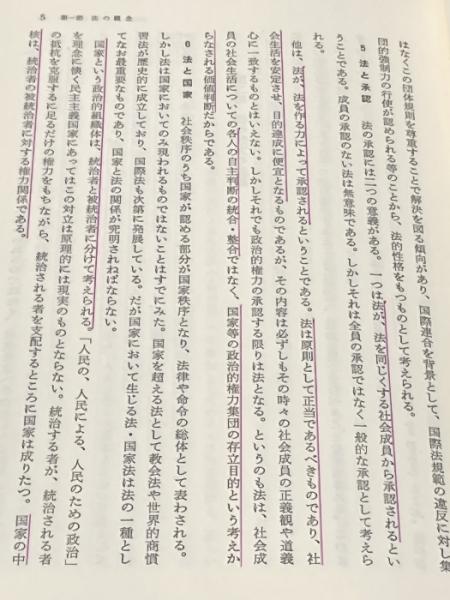 5 第一節 法の概念
はなくこの団体規則を尊重することで解決を図る傾向があり、国際連合を背景として、国際法規範の違反に対し集
団的強制力の行使が認められる等のことから、法的性格をもつものとして考えられる。
5 法と承認 法の承認には二つの意義がある。一つは法が、法を同じくする社会成員から承認されるとい
うことである。成員の承認のない法は無意味である。しかしそれは全員の承認ではなく一般的な承認として考えら
れる。
他は、法が、法を作る力によって承認されるということである。法は原則として正当であるべきものであり、社
会生活を安定させ、目的達成に便宜となるものであるが、その内容は必ずしもその時々の社会成員の正義観や道義
心に一致するものとはいえない。しかしそれでも政治的権力の承認する限りは法となる。というのも法は、社会成
員の社会生活についての各人の自主判断の統合・整合ではなく、国家等の政治的権力集団の存立目的という考えか
らなされる価値判断だからである。
6 法と国家 社会秩序のうち国家が認める部分が国家秩序となり、法律や命令の総体として表わされる。
しかし法は国家においてのみ現われるものではないことはすでにみた。国家を超える法として教会法や世界的商慣
習法が歴史的に成立しており、国際法も次第に発展している。だが国家において生じる法・国家法は法の一種とし
てなお最重要なものであり、国家と法の関係が究明されねばならない。
国家という政治的組織体は、統治者と被統治者に分けて考えられる。「人民の、人民による、人民のための政治」
を理念に懐く民主主義国家にあってはこの対立は原理的には現実のものとならない。統治する者が、統治される者
の抵抗を克服するに足るだけの権力をもちながら、統治される者を支配するところに国家は成りたつ。国家の中
核は、統治者の被統治者に対する権力関係である。